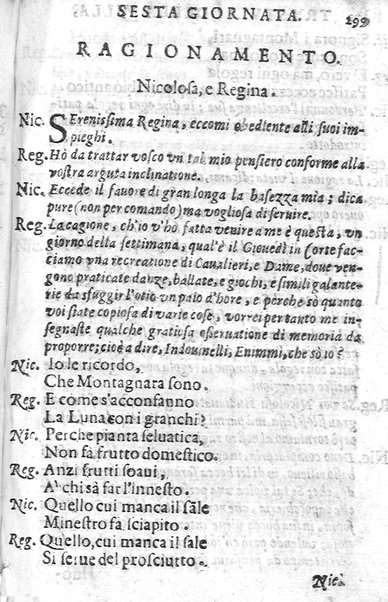 SESTA GIORNATA. 299
RAGIONAMENTO.
Nicolosa, e Regina.
Nic. SErenissima Regina, eccomi obediente alli suoi im-
pieghi.
Reg. Hò da trattar vosco vn tal mio pensiero conforme alla
vostra arguta inclinatione.
Nic. Eccede il fauore di gran longa la bassezza mia; dica
pure (non per comando) ma vogliosa di seruire.
Reg. La cagione, ch'io v'hò fatta venire a me è questa, vn
giorno della settimana, qual'è il Giouedì in Corte fac-
ciamo vna recreatione di Caualieri, e Dame, doue ven-
gono praticate danze, ballate, e giochi, e simili galante-
rie da sfuggir l'otio vn paio d'hore, e perche sò quanto
voi siate copiosa di varie cose, vorrei pertanto me in-
segnaste qualche gratiosa osseruatione di memoria da
proporre; cioè a dire, Indouinelli, Enimmi, che sò io?
Nic. Io le ricordo,
Che Montagnara sono.
Reg. E come s'acconfanno
La Luna con i granchi?
Nic. Perche pianta seluatica,
Non fa frutto domestico.
Reg. Anzi frutti soaui,
A' chi sà far l'innesto.
Nic. Quello cui manca il sale
Minestro fa sciapito.
Reg. Quello, cui manca il sale
Si serue del prosciutto.
Nic.